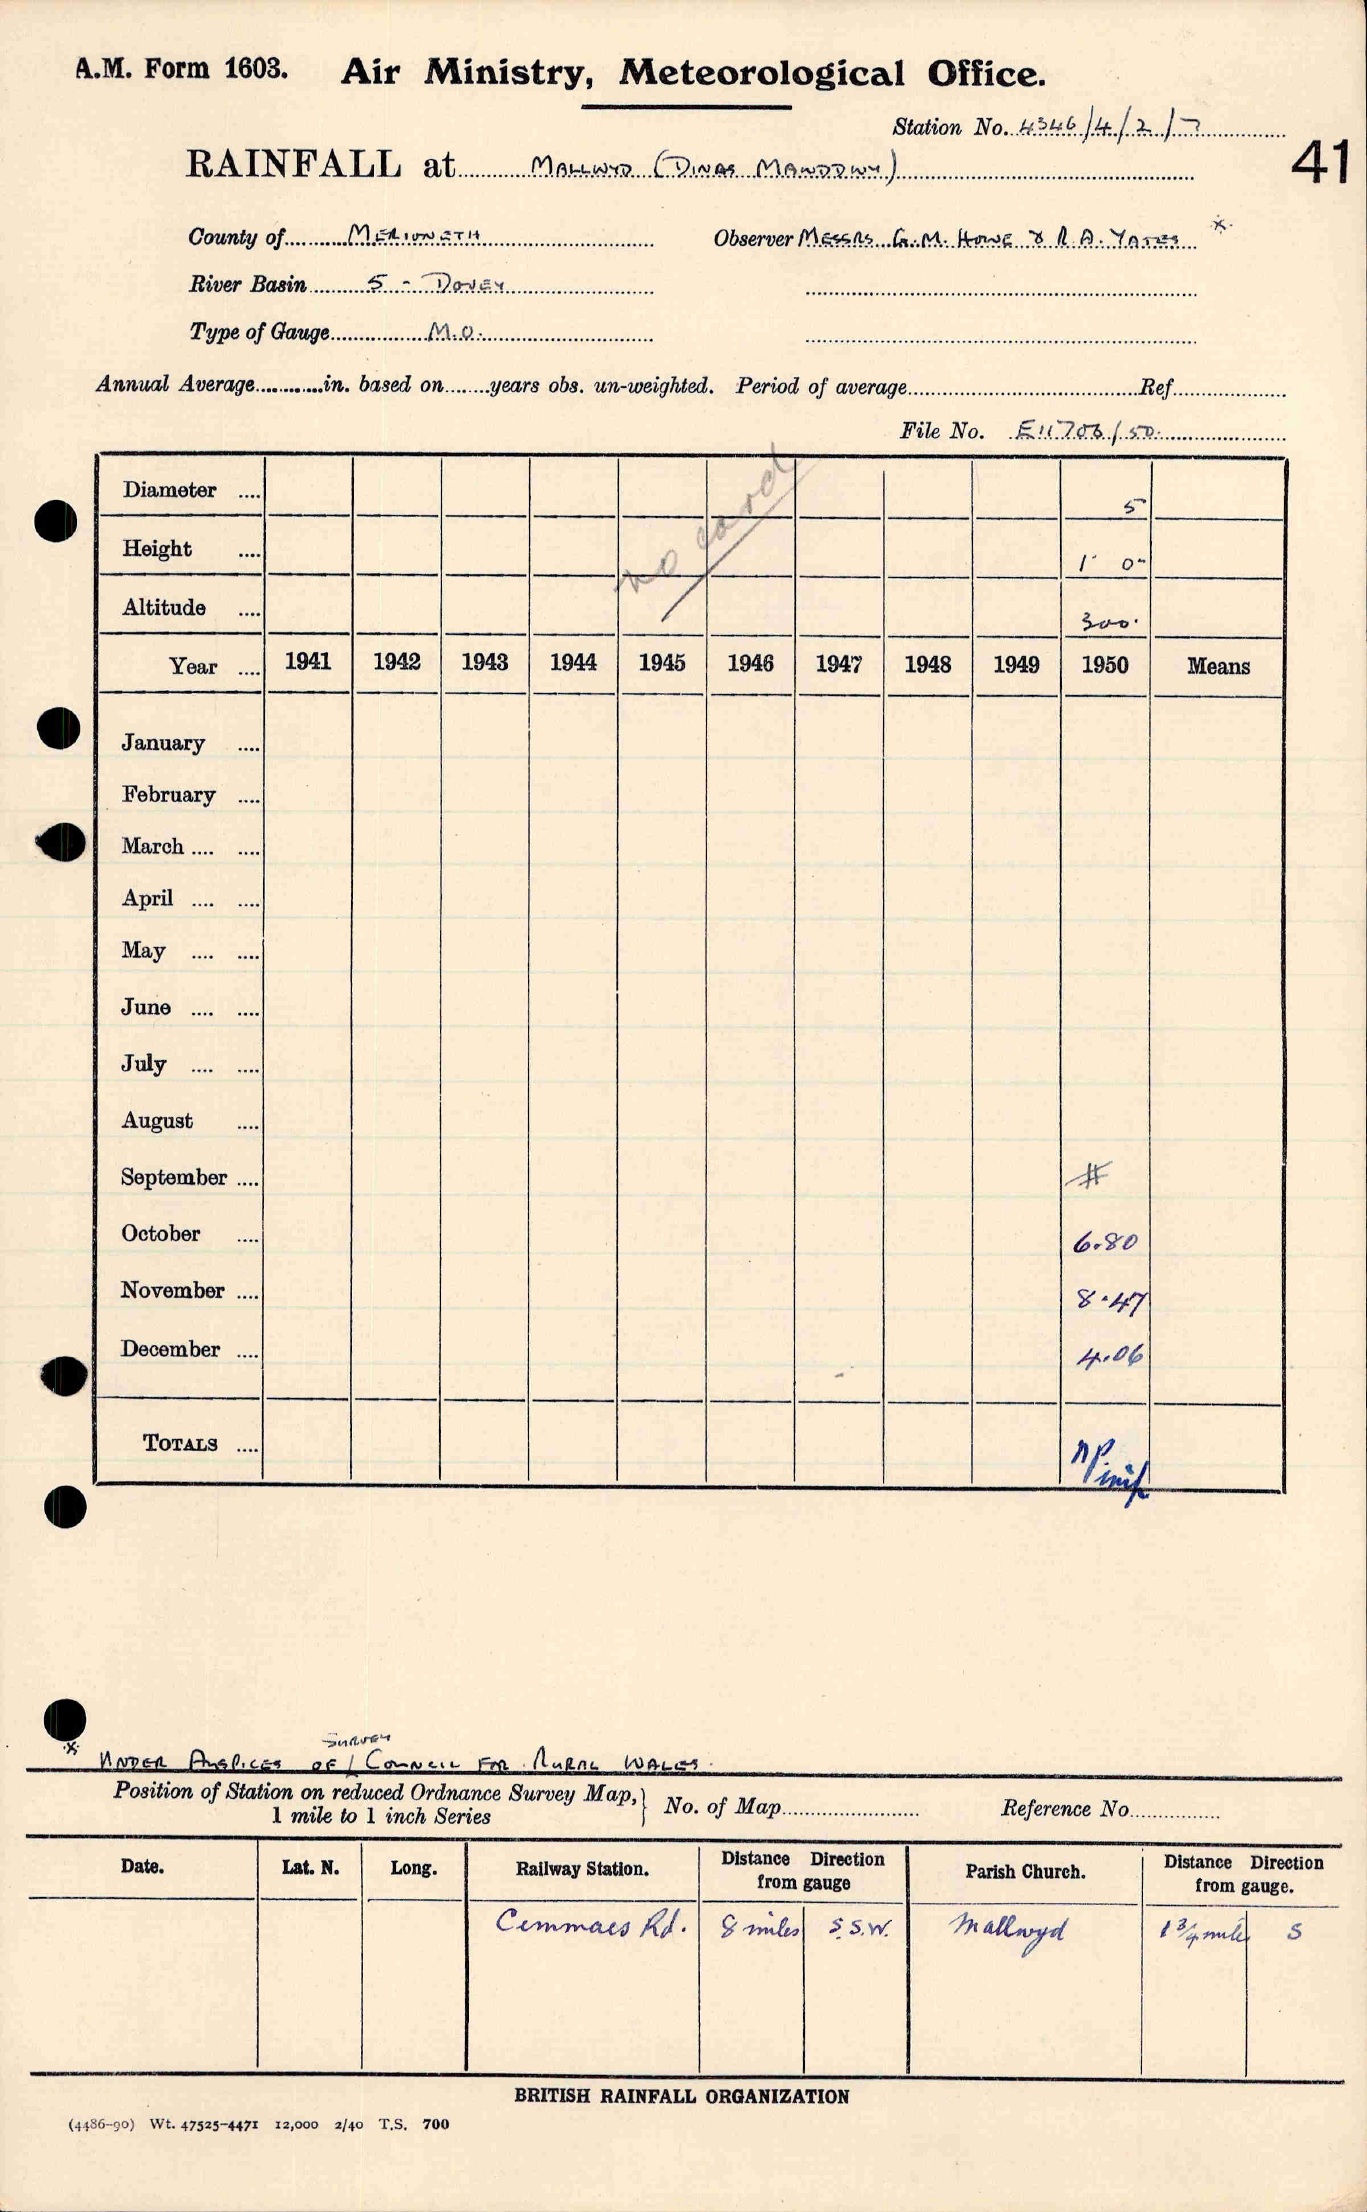 A.M. Form 1603. Air Ministry, Meteorological Office.
Station No. 4346/4/2/7
41
RAINFALL at MALLWYD (DINAS MAWDDWY)
County of MERIONETH Observer MESSRS G.M. HOWE & R.A. YATES *
River Basin 5 - DOVEY
Type of Gauge M.O.
Annual Average............in. based on.......years obs. un-weighted. Period of average Ref
File No. E11706/50
no card
Diameter .... 5
Height .... 1' 0"
Altitude .... 300'
Year .... 1941 1942 1943 1944 1945 1946 1947 1948 1949 1950 Means
January ....
February ....
March .... ....
April .... ....
May .... ....
June .... ....
July .... ....
August ....
September .... #
October .... 6.80
November .... 8.47
December .... 4.06
TOTALS ....
SURVEY
* UNDER AUSPICES OF / COUNCIL FOR RURAL WALES.
Position of Station on reduced Ordnance Survey Map, } No. of Map Reference No.
1 mile to 1 inch Series
Date. Lat. N. Long. Railway Station. Distance Direction from gauge Parish Church. Distance Direction from gauge.
Cemmaes Rd. 8 miles S.S.W. Mallwyd 1 3/4 mile S
BRITISH RAINFALL ORGANIZATION
(4486-90) Wt. 47525-4471 12,000 2/40 T.S. 700